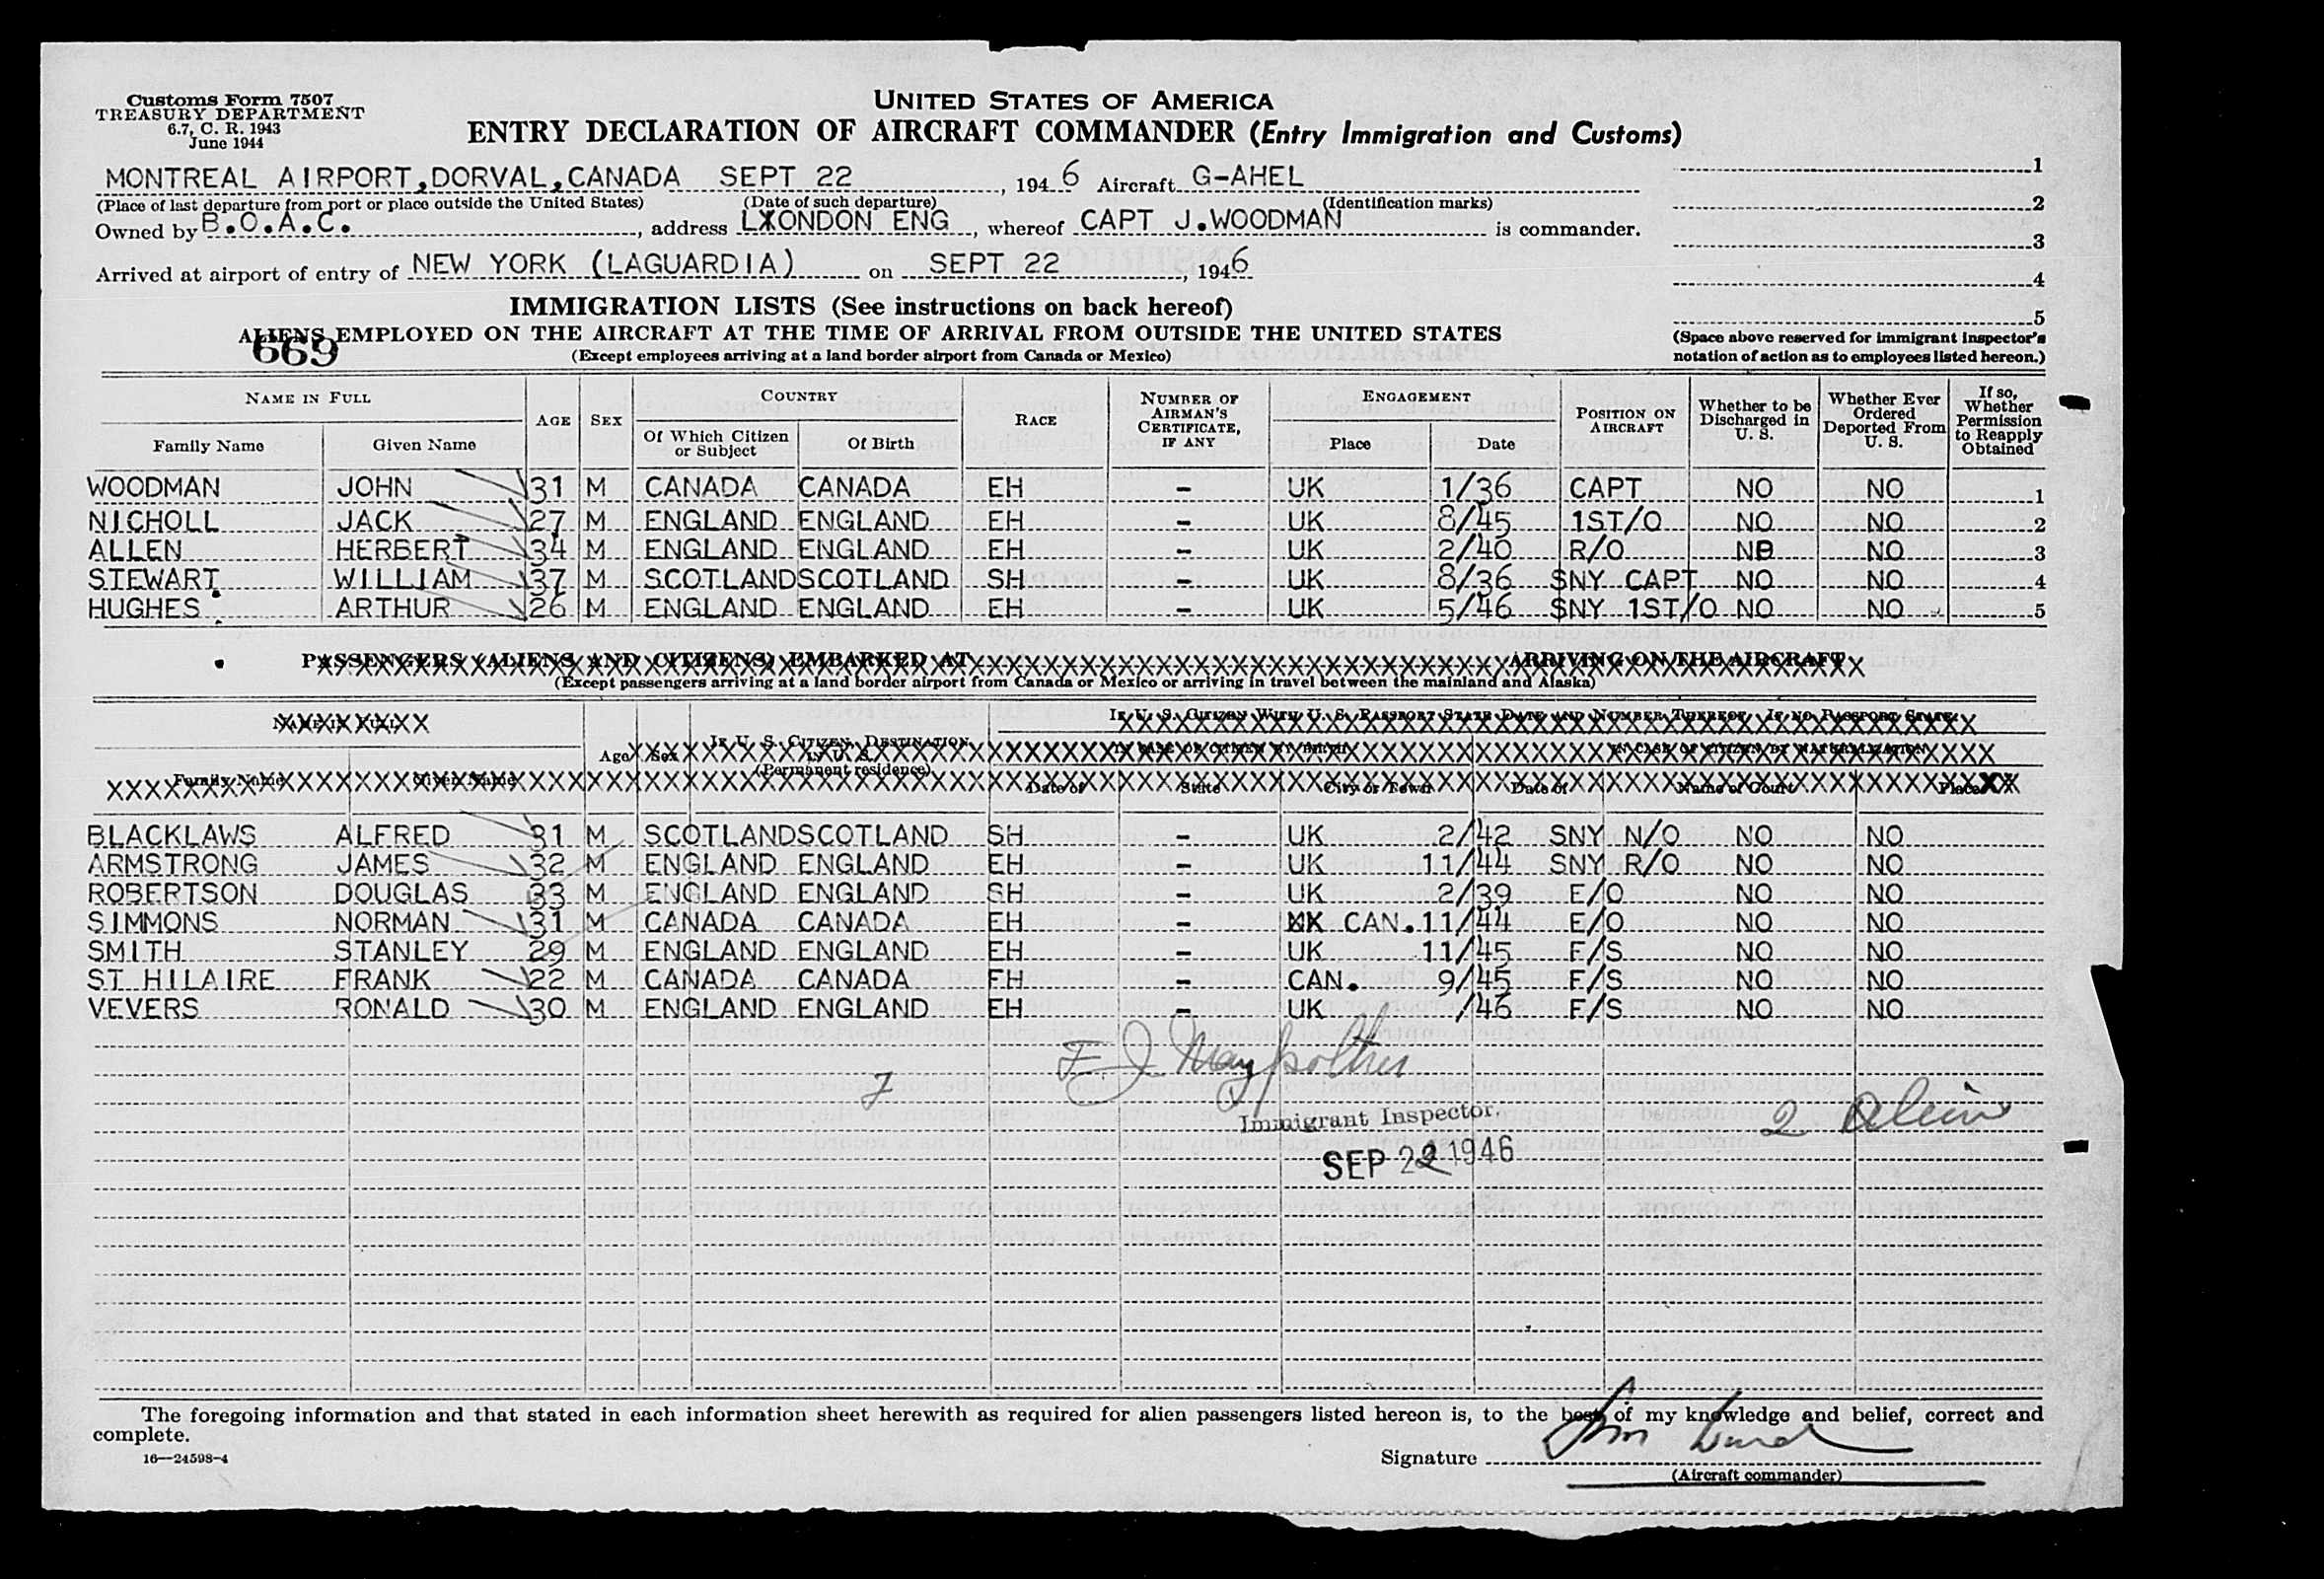 Customs Form 7507
TREASURY DEPARTMENT
6.7, C. R. 1943
June 1944
UNITED STATES OF AMERICA
ENTRY DECLARATION OF AIRCRAFT COMMANDER (Entry Immigration and Customs)
MONTREAL AIRPORT,DORVAL,CANADA SEPT 22, 1946 Aircraft G-AHEL
(Place of last departure from port or place outside the United States) (Date of such departure) (Identification marks)
Owned by B.O.A.C., address LXONDON ENG, whereof CAPT J.WOODMAN is commander.
Arrived at airport of entry of NEW YORK (LAGUARDIA) on SEPT 22, 1946
1
2
3
4
5
(Space above reserved for immigrant inspector's notation of action as to employees listed hereon.)
IMMIGRATION LISTS (See instructions on back hereof)
ALIENS EMPLOYED ON THE AIRCRAFT AT THE TIME OF ARRIVAL FROM OUTSIDE THE UNITED STATES
669
(Except employees arriving at a land border airport from Canada or Mexico)
NAME IN FULL AGE SEX COUNTRY RACE NUMBER OF AIRMAN'S CERTIFICATE, IF ANY ENGAGEMENT POSITION ON AIRCRAFT Whether to be Discharged in U. S. Whether Ever Ordered Deported From U. S. If so, Whether Permission to Reapply Obtained
Family Name Given Name Of Which Citizen or Subject Of Birth Place Date
WOODMAN JOHN 31 M CANADA CANADA EH - UK 1/36 CAPT NO NO 1
NICHOLL JACK 27 M ENGLAND ENGLAND EH - UK 8/45 1ST/O NO NO 2
ALLEN HERBERT 34 M ENGLAND ENGLAND EH - UK 2/40 R/O NO NO 3
STEWART. WILLIAM 37 M SCOTLAND SCOTLAND SH - UK 8/36 SNY CAPT NO NO 4
HUGHES ARTHUR 26 M ENGLAND ENGLAND EH - UK 5/46 SNY 1ST/O NO NO 5
PASSENGERS (ALIENS AND CITIZENS) EMBARKED AT ARRIVING ON THE AIRCRAFT
(Except passengers arriving at a land border airport from Canada or Mexico or arriving in travel between the mainland and Alaska)
NAME IN FULL IF U. S. CITIZEN WITH U. S. PASSPORT STATE DATE AND NUMBER THEREOF. IF NO PASSPORT STATE:
Age Sex IF U. S. CITIZEN, DESTINATION IN U. S. (Permanent residence) IN CASE OF CITIZEN BY BIRTH IN CASE OF CITIZEN BY NATURALIZATION
Family Name Given Name Date of State City or Town Date of Name of Court Place
BLACKLAWS ALFRED 31 M SCOTLAND SCOTLAND SH - UK 2/42 SNY N/O NO NO
ARMSTRONG JAMES 32 M ENGLAND ENGLAND EH - UK 11/44 SNY R/O NO NO
ROBERTSON DOUGLAS 33 M ENGLAND ENGLAND SH - UK 2/39 E/O NO NO
SIMMONS NORMAN 31 M CANADA CANADA EH - XX CAN. 11/44 E/O NO NO
SMITH STANLEY 29 M ENGLAND ENGLAND EH - UK 11/45 F/S NO NO
ST HILAIRE FRANK 22 M CANADA CANADA FH - CAN. 9/45 F/S NO NO
VEVERS RONALD 30 M ENGLAND ENGLAND EH - UK /46 F/S NO NO
7
Immigrant Inspector.
2 Alien
SEP 22 1946
The foregoing information and that stated in each information sheet herewith as required for alien passengers listed hereon is, to the best of my knowledge and belief, correct and
complete.
16—24598-4
Signature
(Aircraft commander)